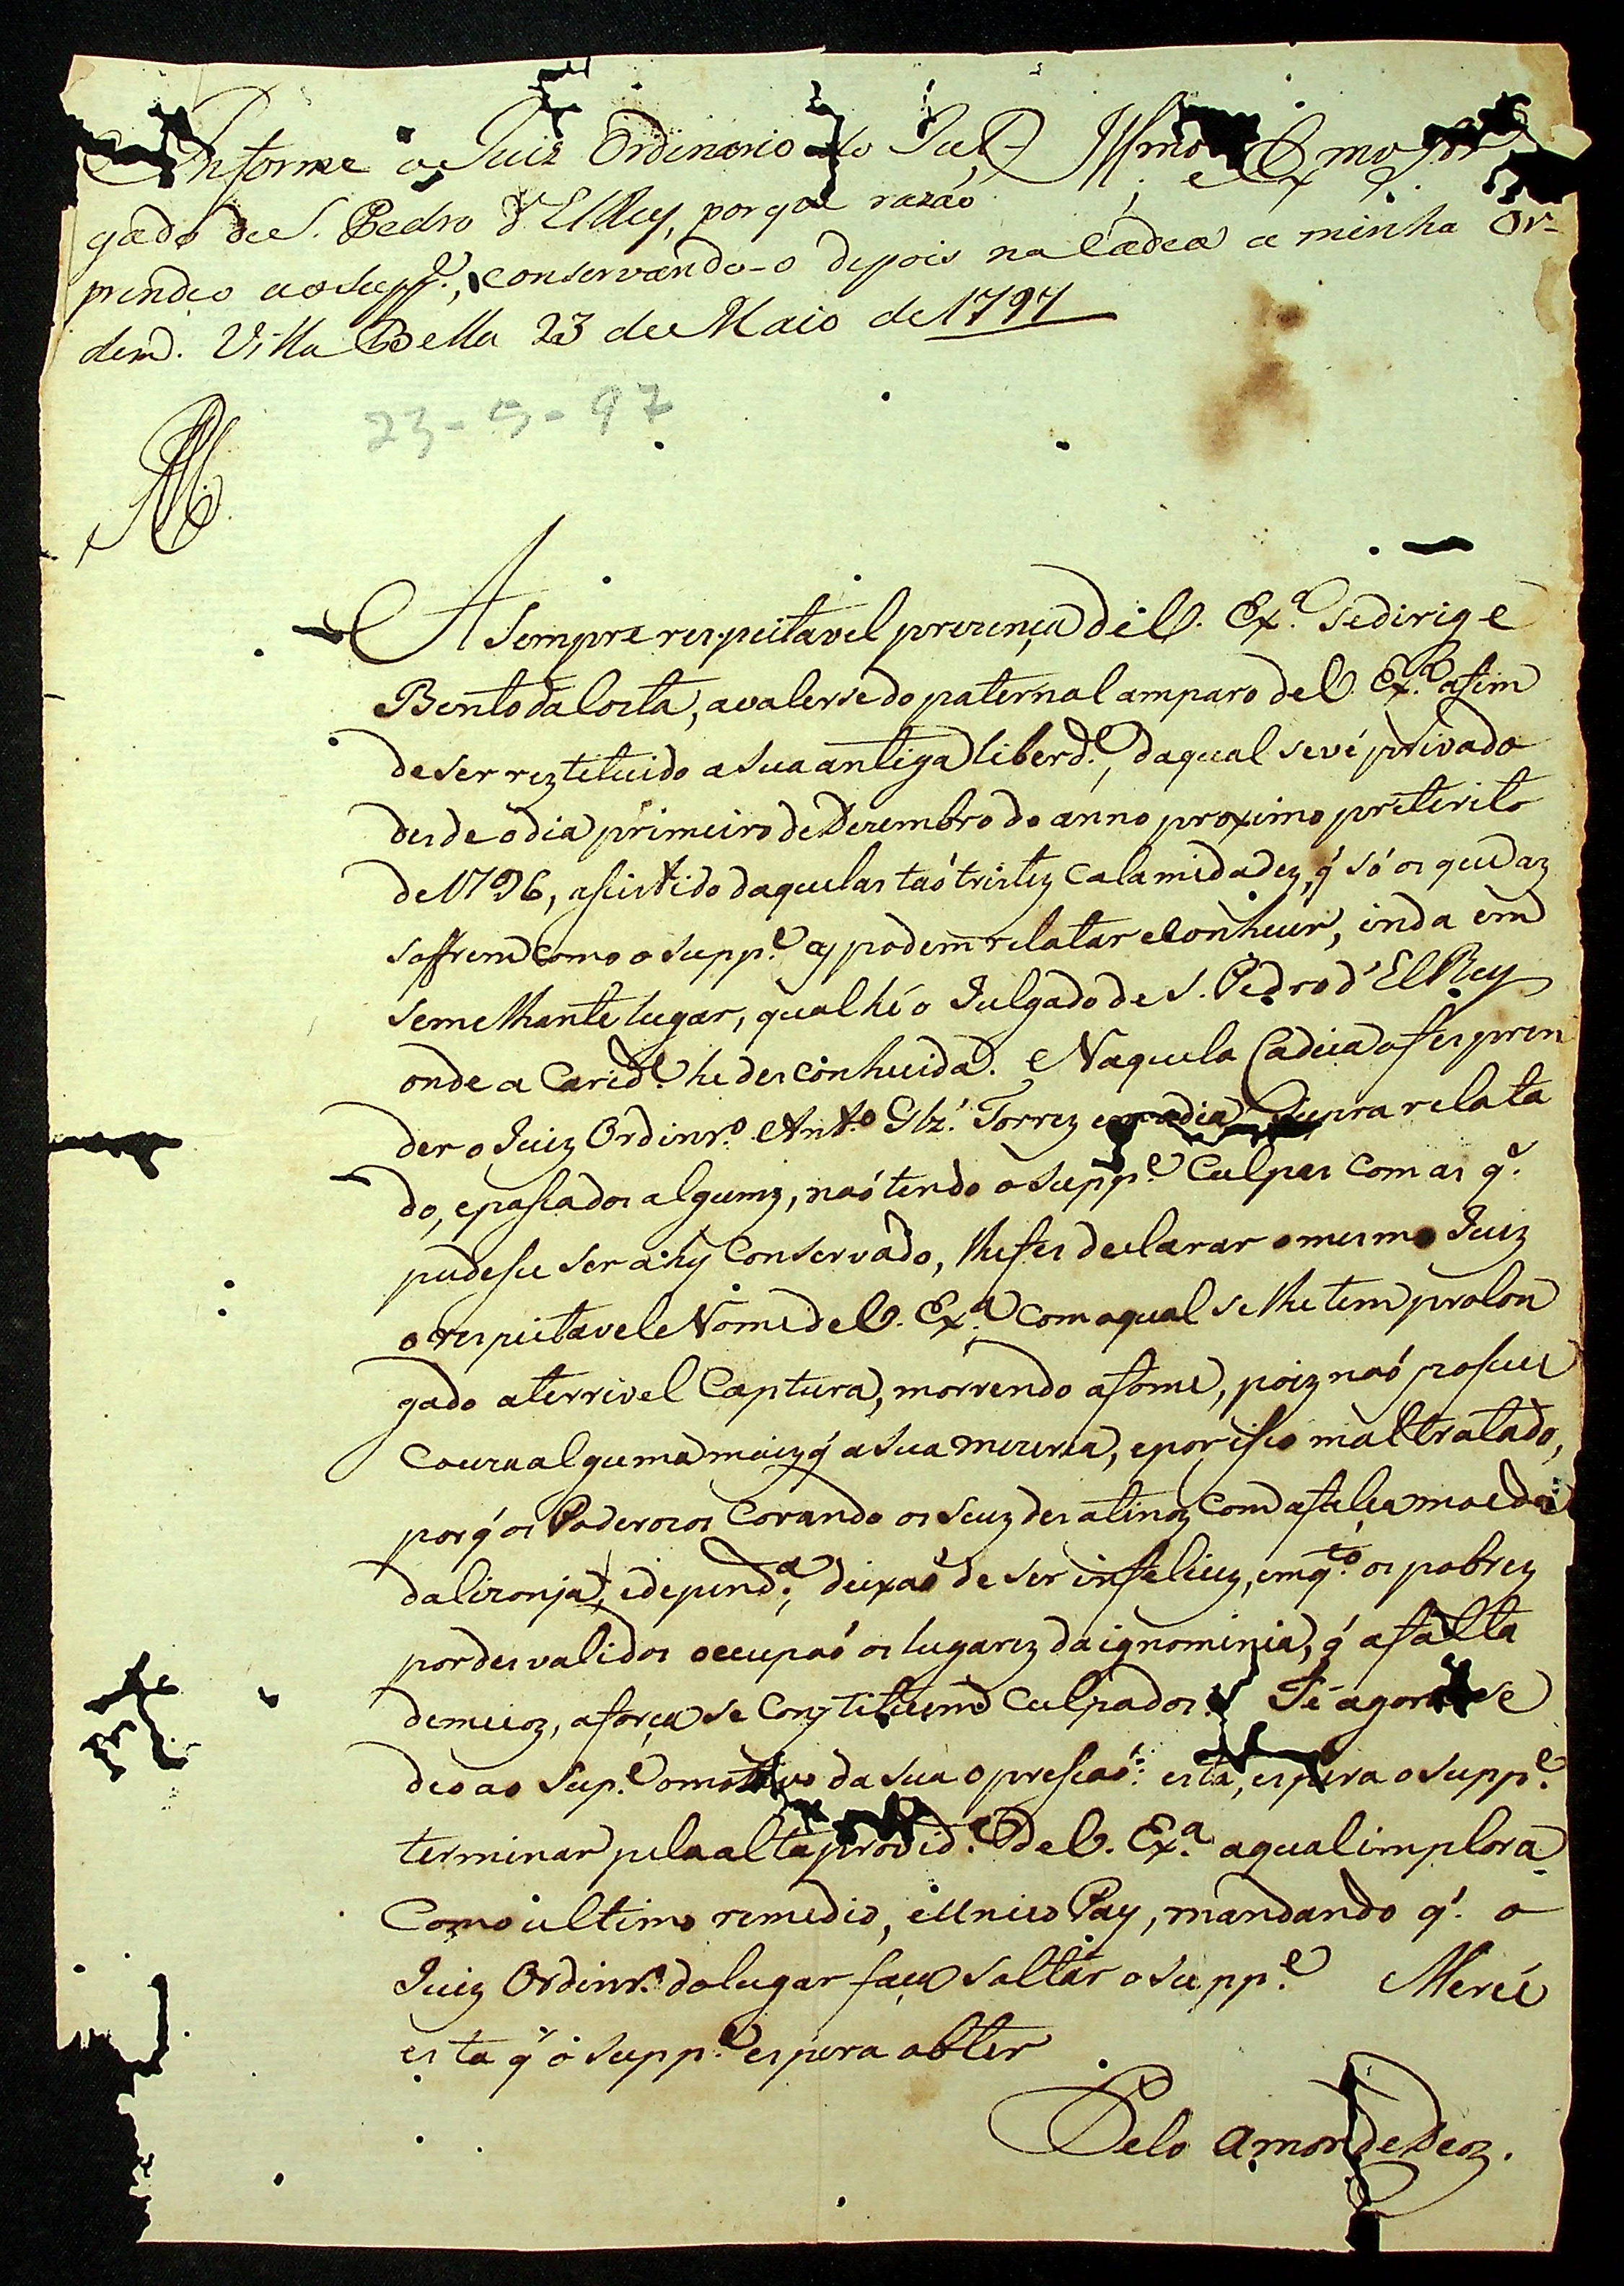 Informe o Juiz Ordinario do Jul-
Illmo. e Exmo. Snr.
gado de S. Pedro d'ElRey, porque razaõ
prendeo ao supp.e, conservando-o depois na Cadea a minha or-
dem. Villa Bella 23 de Maio de 1797
23-5-97
A Sempre respeitavel prezença de V. Ex.a se dirige
Bento da Costa, a valerse do paternal amparo de V. Ex.a afim
de ser reztetuido a sua antiga liberd.e, da qual se vé privado
desde o dia primeiro de Dezembro do anno proximo preterito
de 1796, asistido daquelas taõ tristez Calamidadez, q' só os que as
soffrem como o Supp.e as podem relatar e Conhecer, inda em
Semelhante lugar, qual hé o Julgado de S. Pedro d'ElRey
onde a Carid.e he desconhecida. Naquela Cadeia o fes pren
der o Juiz Ordinr.o Ant.o Glz.' Torrez em o dia Supra relata
do, e passados algunz, naõ tendo o Supp.e Culpas com as q.e
pudesse ser ahy Conservado, lhe fes declarar o mesmo Juiz
o respeitavel Nome de V. Ex.a com o qual se lhe tem prolon
gado a terrivel Captura, morrendo a fome, poiz naõ possue
Couza alguma maiz q' a sua mizeria, e por isso maltratado,
porq' os Poderozos Corando os Seuz desatinoz com a fulea moeda
da lizonja, e depend.a, deixaõ de ser infelicez, emq.to os pobrez
por desvalidos occupaõ os lugarez da ignominia, q' a falta
de meioz, a força se Conztituem Culpados. Té agora se
deo ao Sup.e o motivo da sua opressaõ: esta, espera o supp.e
terminar pela alta provid.a de V. Ex.a a qual implora
Como ultimo remedio, e Unico Pay, mandando q' o
Juiz Ordinr.o do lugar faça Soltar o Supp.e Mercê
esta q' o Supp.e espera obter
Pelo amor de Deoz.